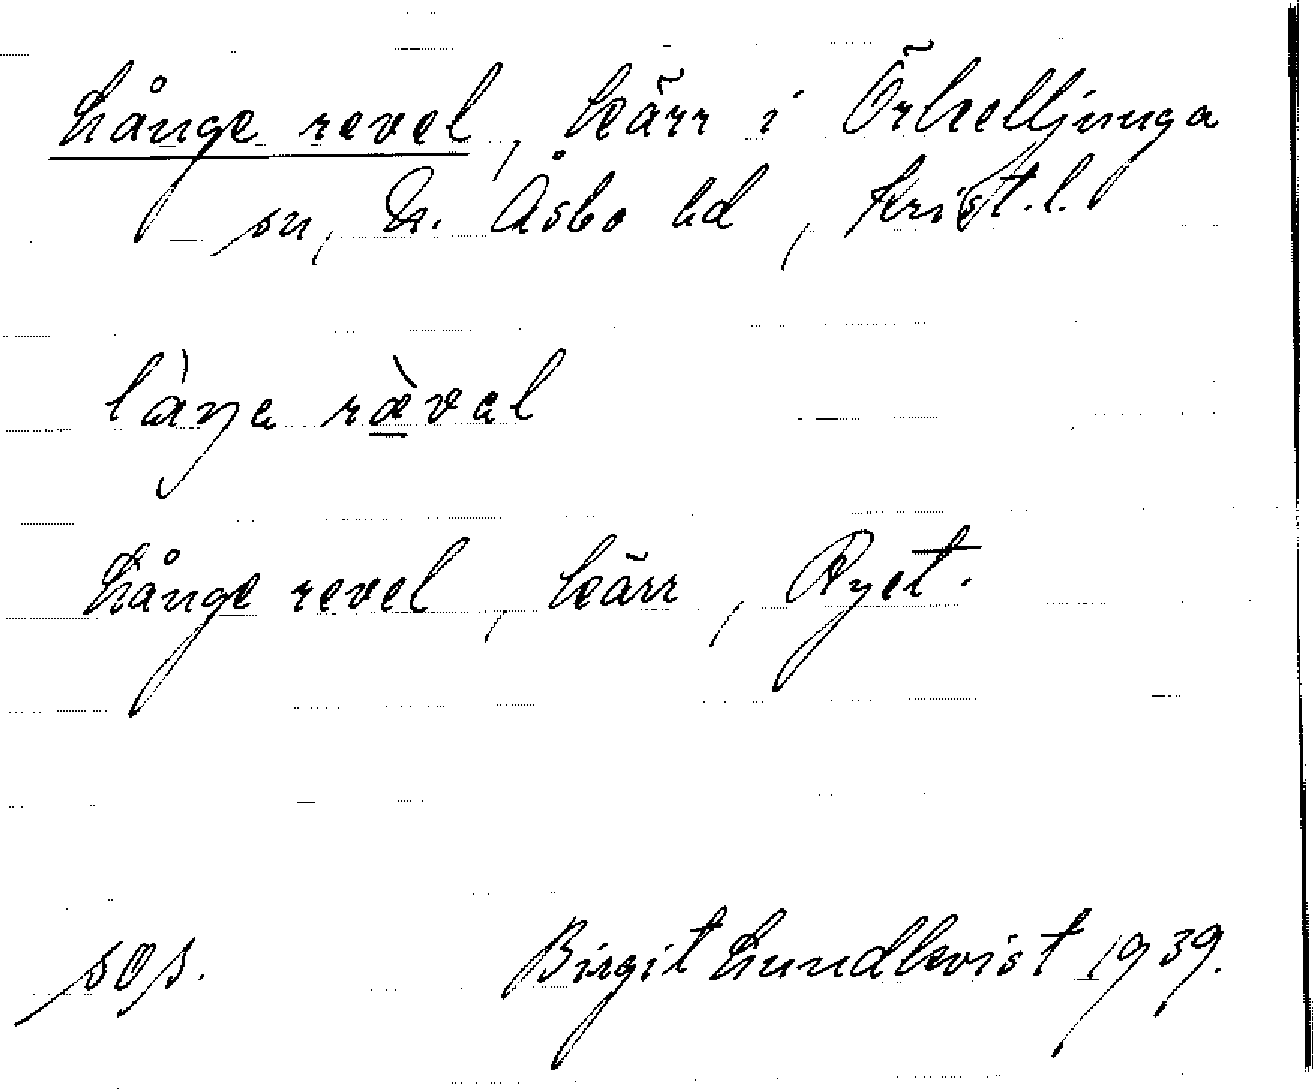 Långe revel, kärr i Örkelljunga
sn, N. Åsbo hd, Krist. l.
làŋa ræ̀vel
Långe revel, kärr, Ryet.
sos. Birgit Lundkvist 1939.